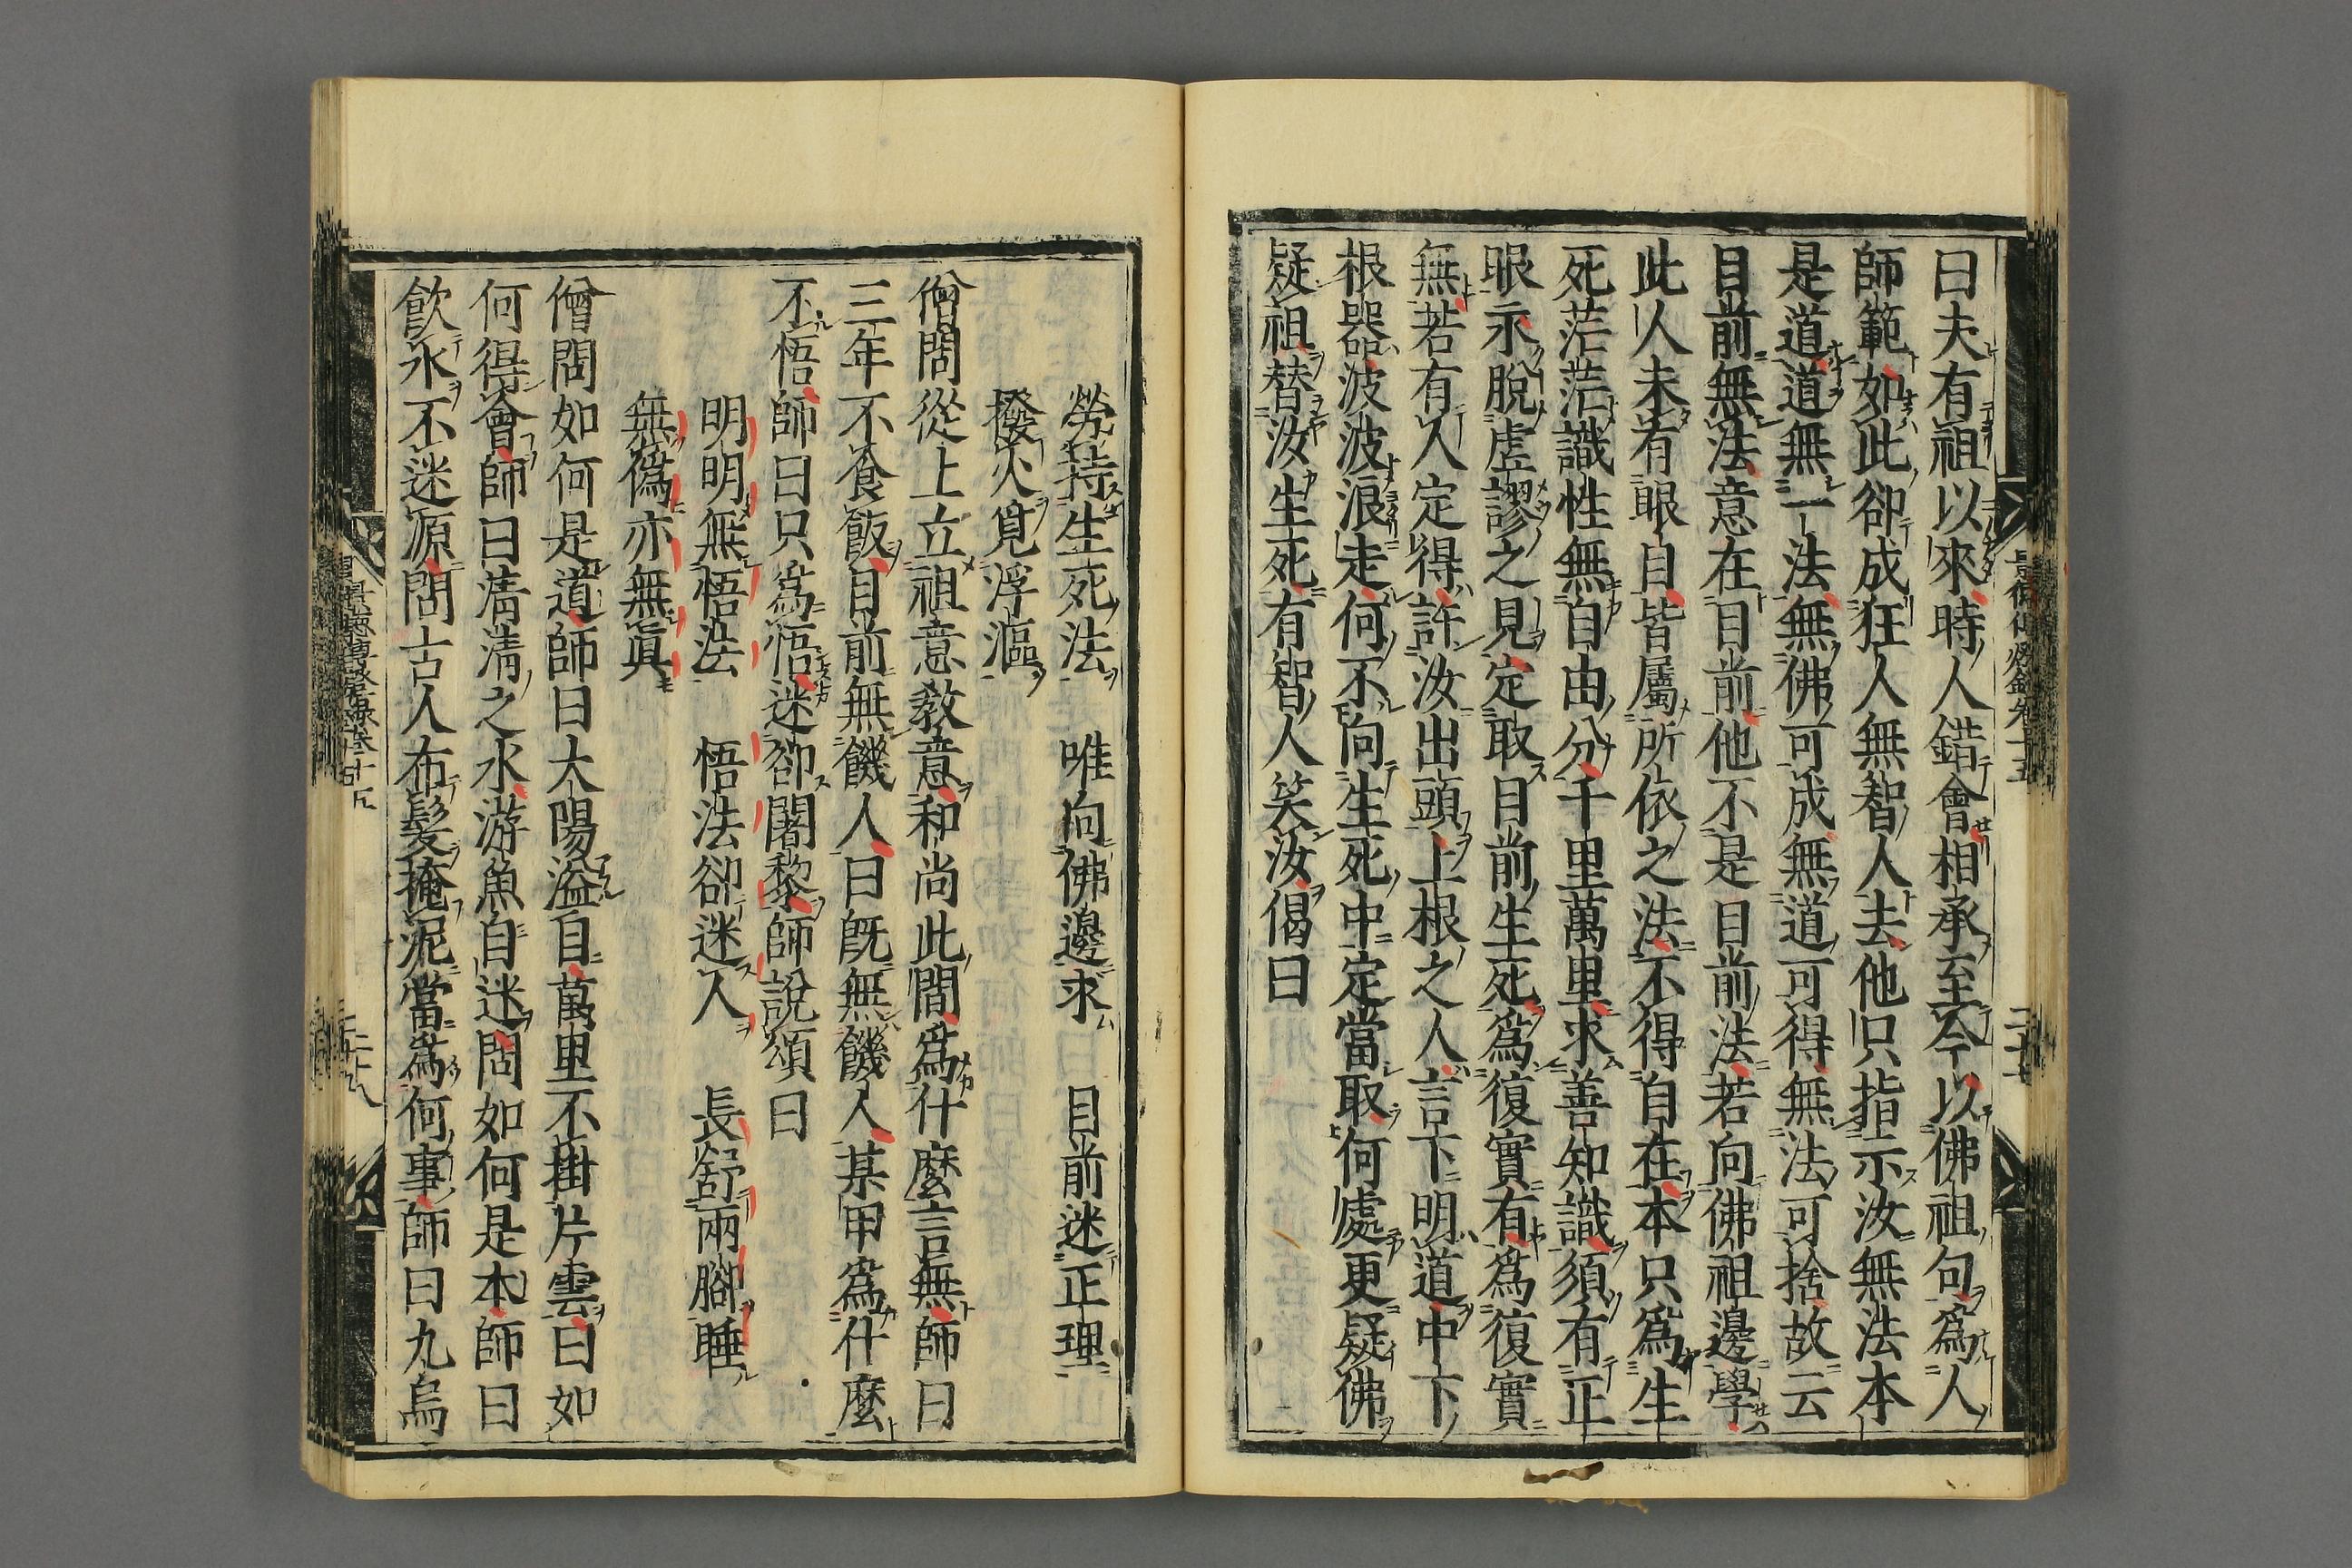 曰夫有祖以來時人錯會相承至今以佛祖句爲人
師範如此卻成狂人無智人去他只指示汝無法本
是道道無一法無佛可成無道可得無法可捨故云
目前無法意在目前他不是目前法若向佛祖邊學
此人未有眼目皆屬所依之法不得自在本只爲生
死茫茫識性無自由分千里萬里求善知識須有正
眼永脫虛謬之見定取目前生死爲復實有爲復實
無若有人定得許汝出頭上根之人言下明道中下
根器波波浪走何不向生死中定當取何處更疑佛
疑祖替汝生死有智人笑汝偈曰
勞持生死法　唯向佛邊求　目前迷正理
撥火覓浮漚
僧問從上立祖意教意和尚此間爲什麼言無師曰
三年不食飯目前無饑人曰既無饑人某甲爲什麼
不悟師曰只爲悟迷卻闍黎師說頌曰
明明無悟法　悟法卻迷人　長舒兩腳睡
無僞亦無眞
僧問如何是道師曰太陽溢目萬里不掛片雲曰如
何得會師曰淸淸之水游魚自迷問如何是本師曰
飮水不迷源問古人布髮掩泥當爲何事師曰九烏